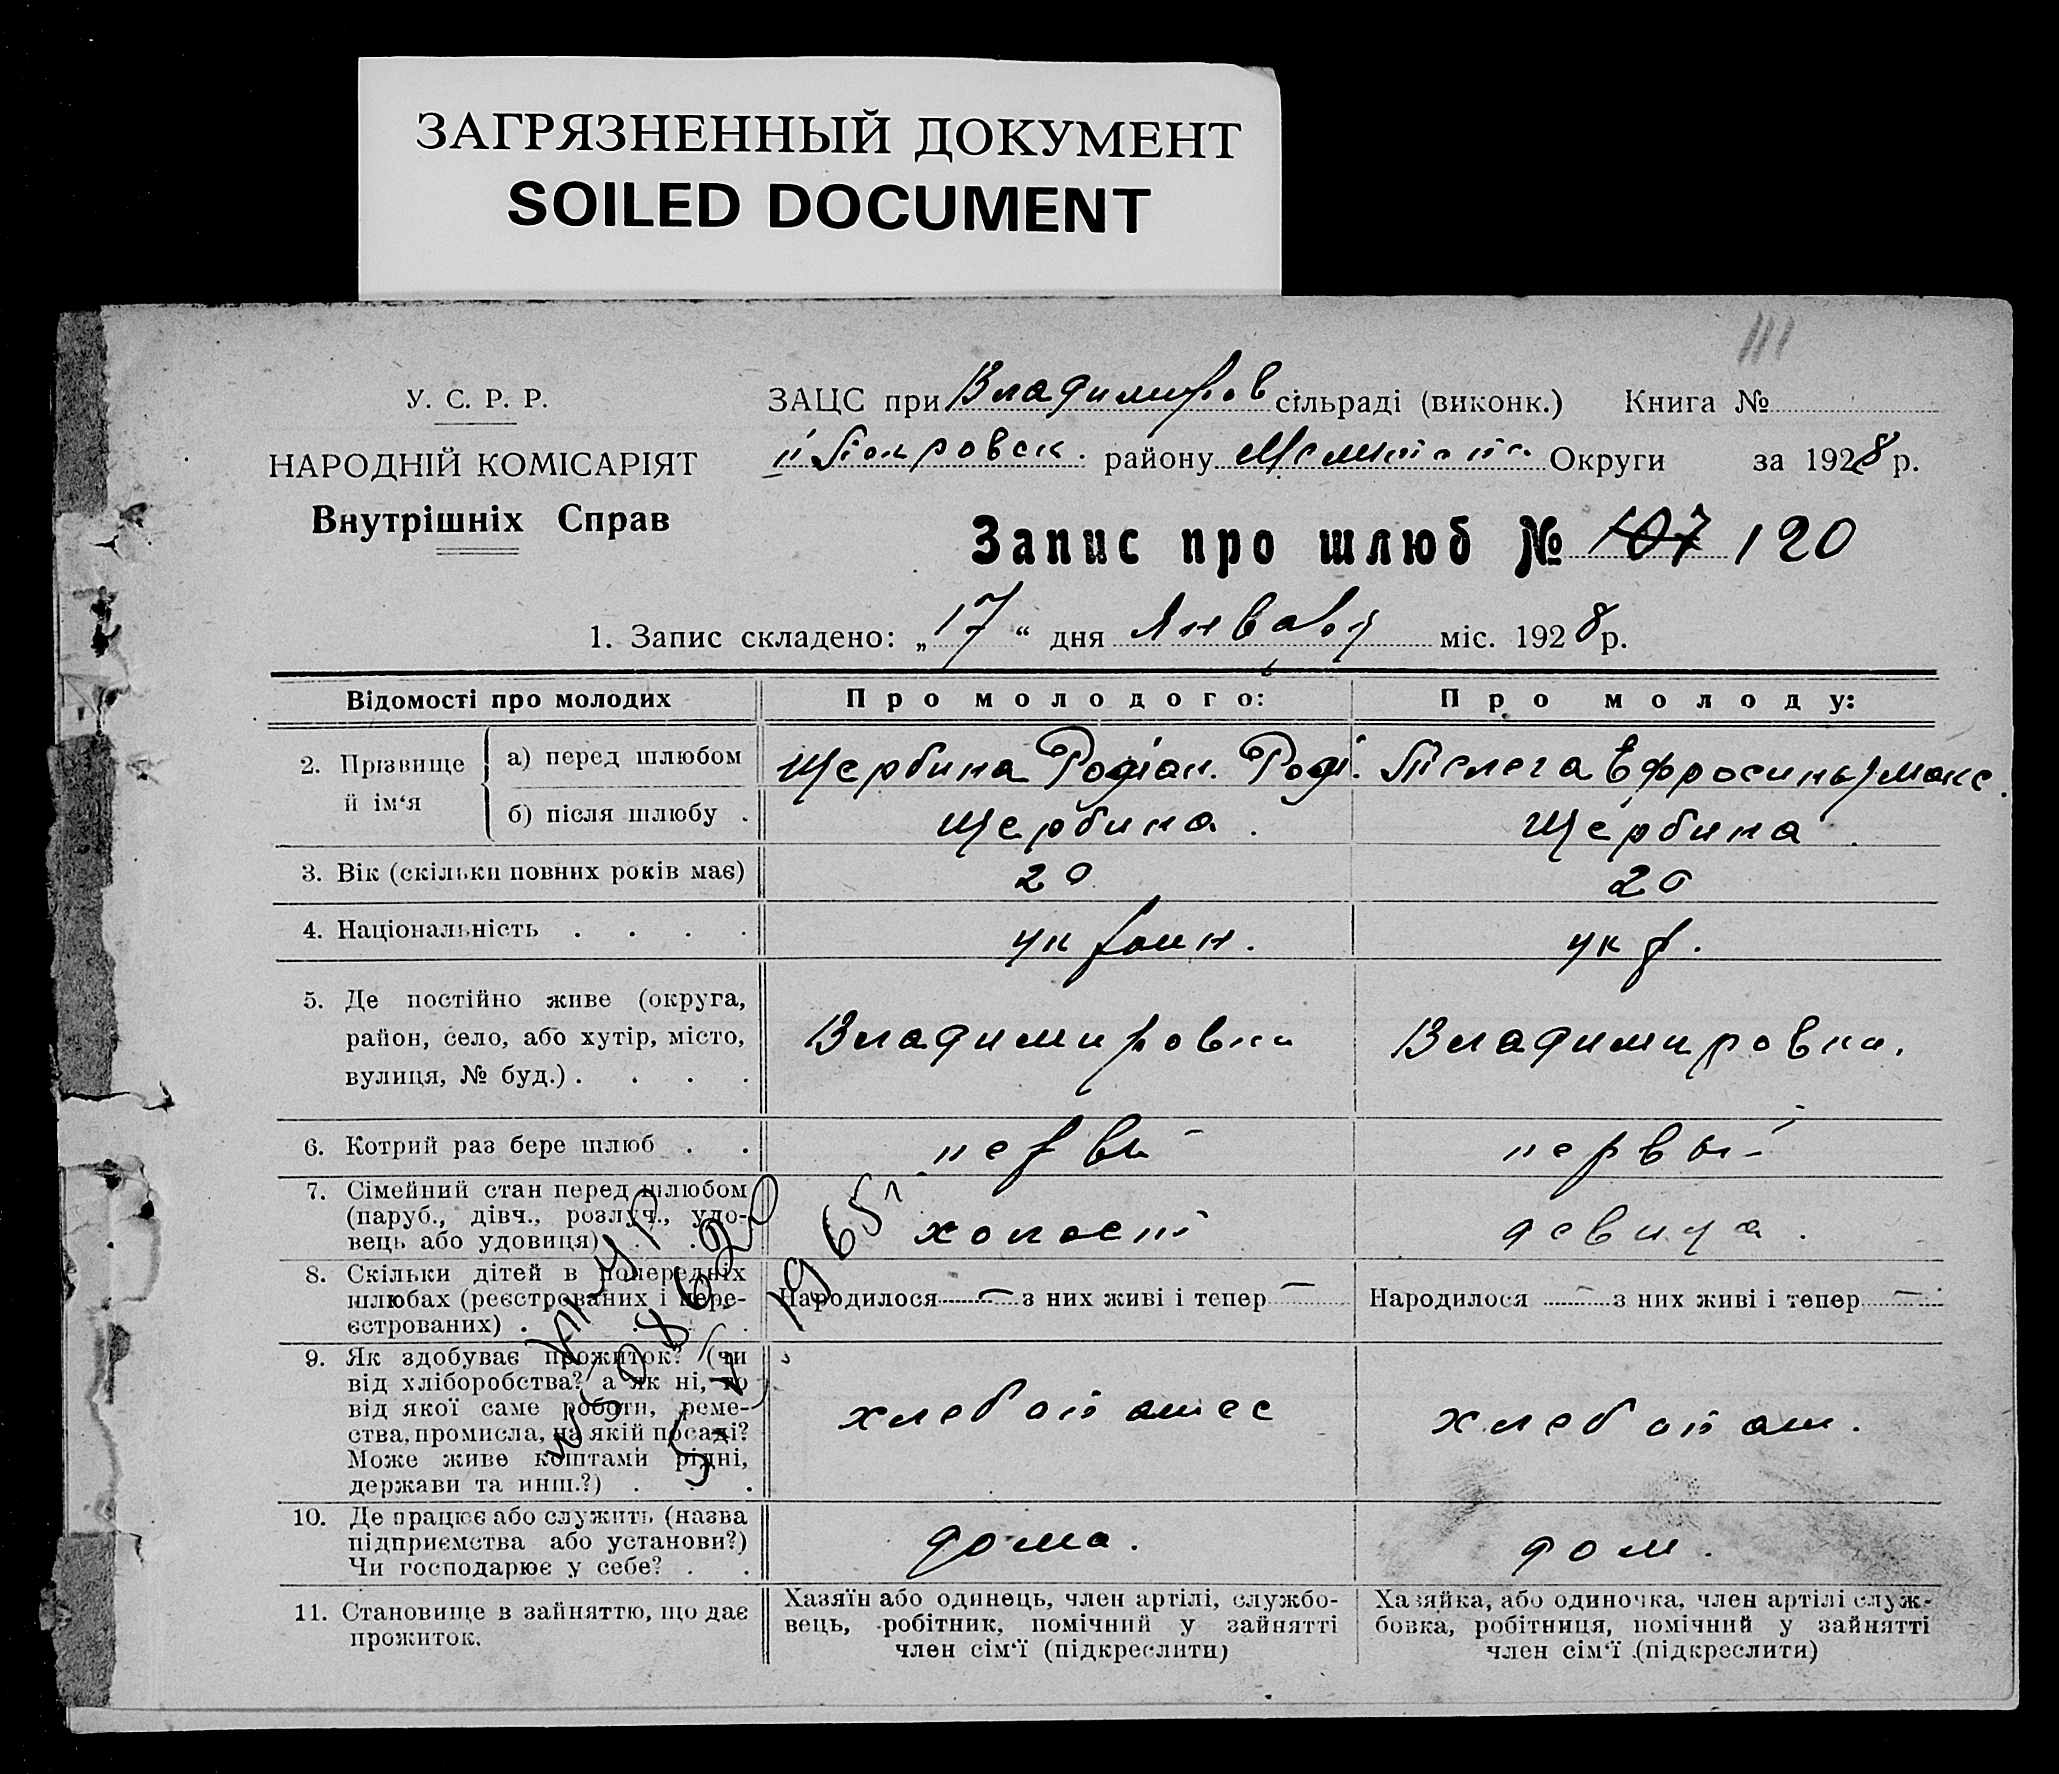 ЗАГРЯЗНЕННЫЙ ДОКУМЕНТ
SOILED DOCUMENT
111
У. С. Р. Р.
НАРОДНІЙ КОМІСАРІЯТ
Внутрішніх Справ
ЗАЦС при Владимиров сільраді (виконк.) Книга №
Покровск. району Округи за 1928 р.
Запис про шлюб № 107 120
1. Запис складено: „17“ дня Января міс. 1928 р.
Відомості про молодих Про молодого: Про молоду:
2. Прізвище й ім‘я
а) перед шлюбом Щербина Родіон. Роді. Телега Ефросинья Макс.
б) після шлюбу . Щербина . Щербина .
3. Вік (скільки повних років має) 20 20
4. Національність . . . . украин. укр.
5. Де постійно живе (округа,
район, село, або хутір, місто,
вулиця, № буд.) . . . .
Владимировка Владимировка.
6. Котрий раз бере шлюб . . первый первый
7. Сімейний стан перед шлюбом
(паруб., дівч., розлуч., удо-
вець або удовиця) . . .
холост девица .
8. Скільки дітей в попередніх
шлюбах (реєстрованих і пере-
єстрованих) . . . .
Народилося — з них живі і тепер — Народилося — з них живі і тепер —
9. Як здобуває прожиток? (чи
від хліборобства? а як ні, то
від якої саме роботи, реме-
ства, промисла, на якій посаді?
Може живе коштами рідні,
держави та инш.?) . . .
хлебопашес хлебопаш.
10. Де працює або служить (назва
підприємства або установи?)
Чи господарює у себе? . .
дома. дом.
11. Становище в зайняттю, що дає
прожиток.
Хазяїн або одинець, член артілі, службо-
вець, робітник, помічний у зайнятті
член сім‘ї (підкреслити)
Хазяйка, або одиночка, член артілі служ-
бовка, робітниця, помічний у зайнятті
член сім‘ї (підкреслити)
1965г